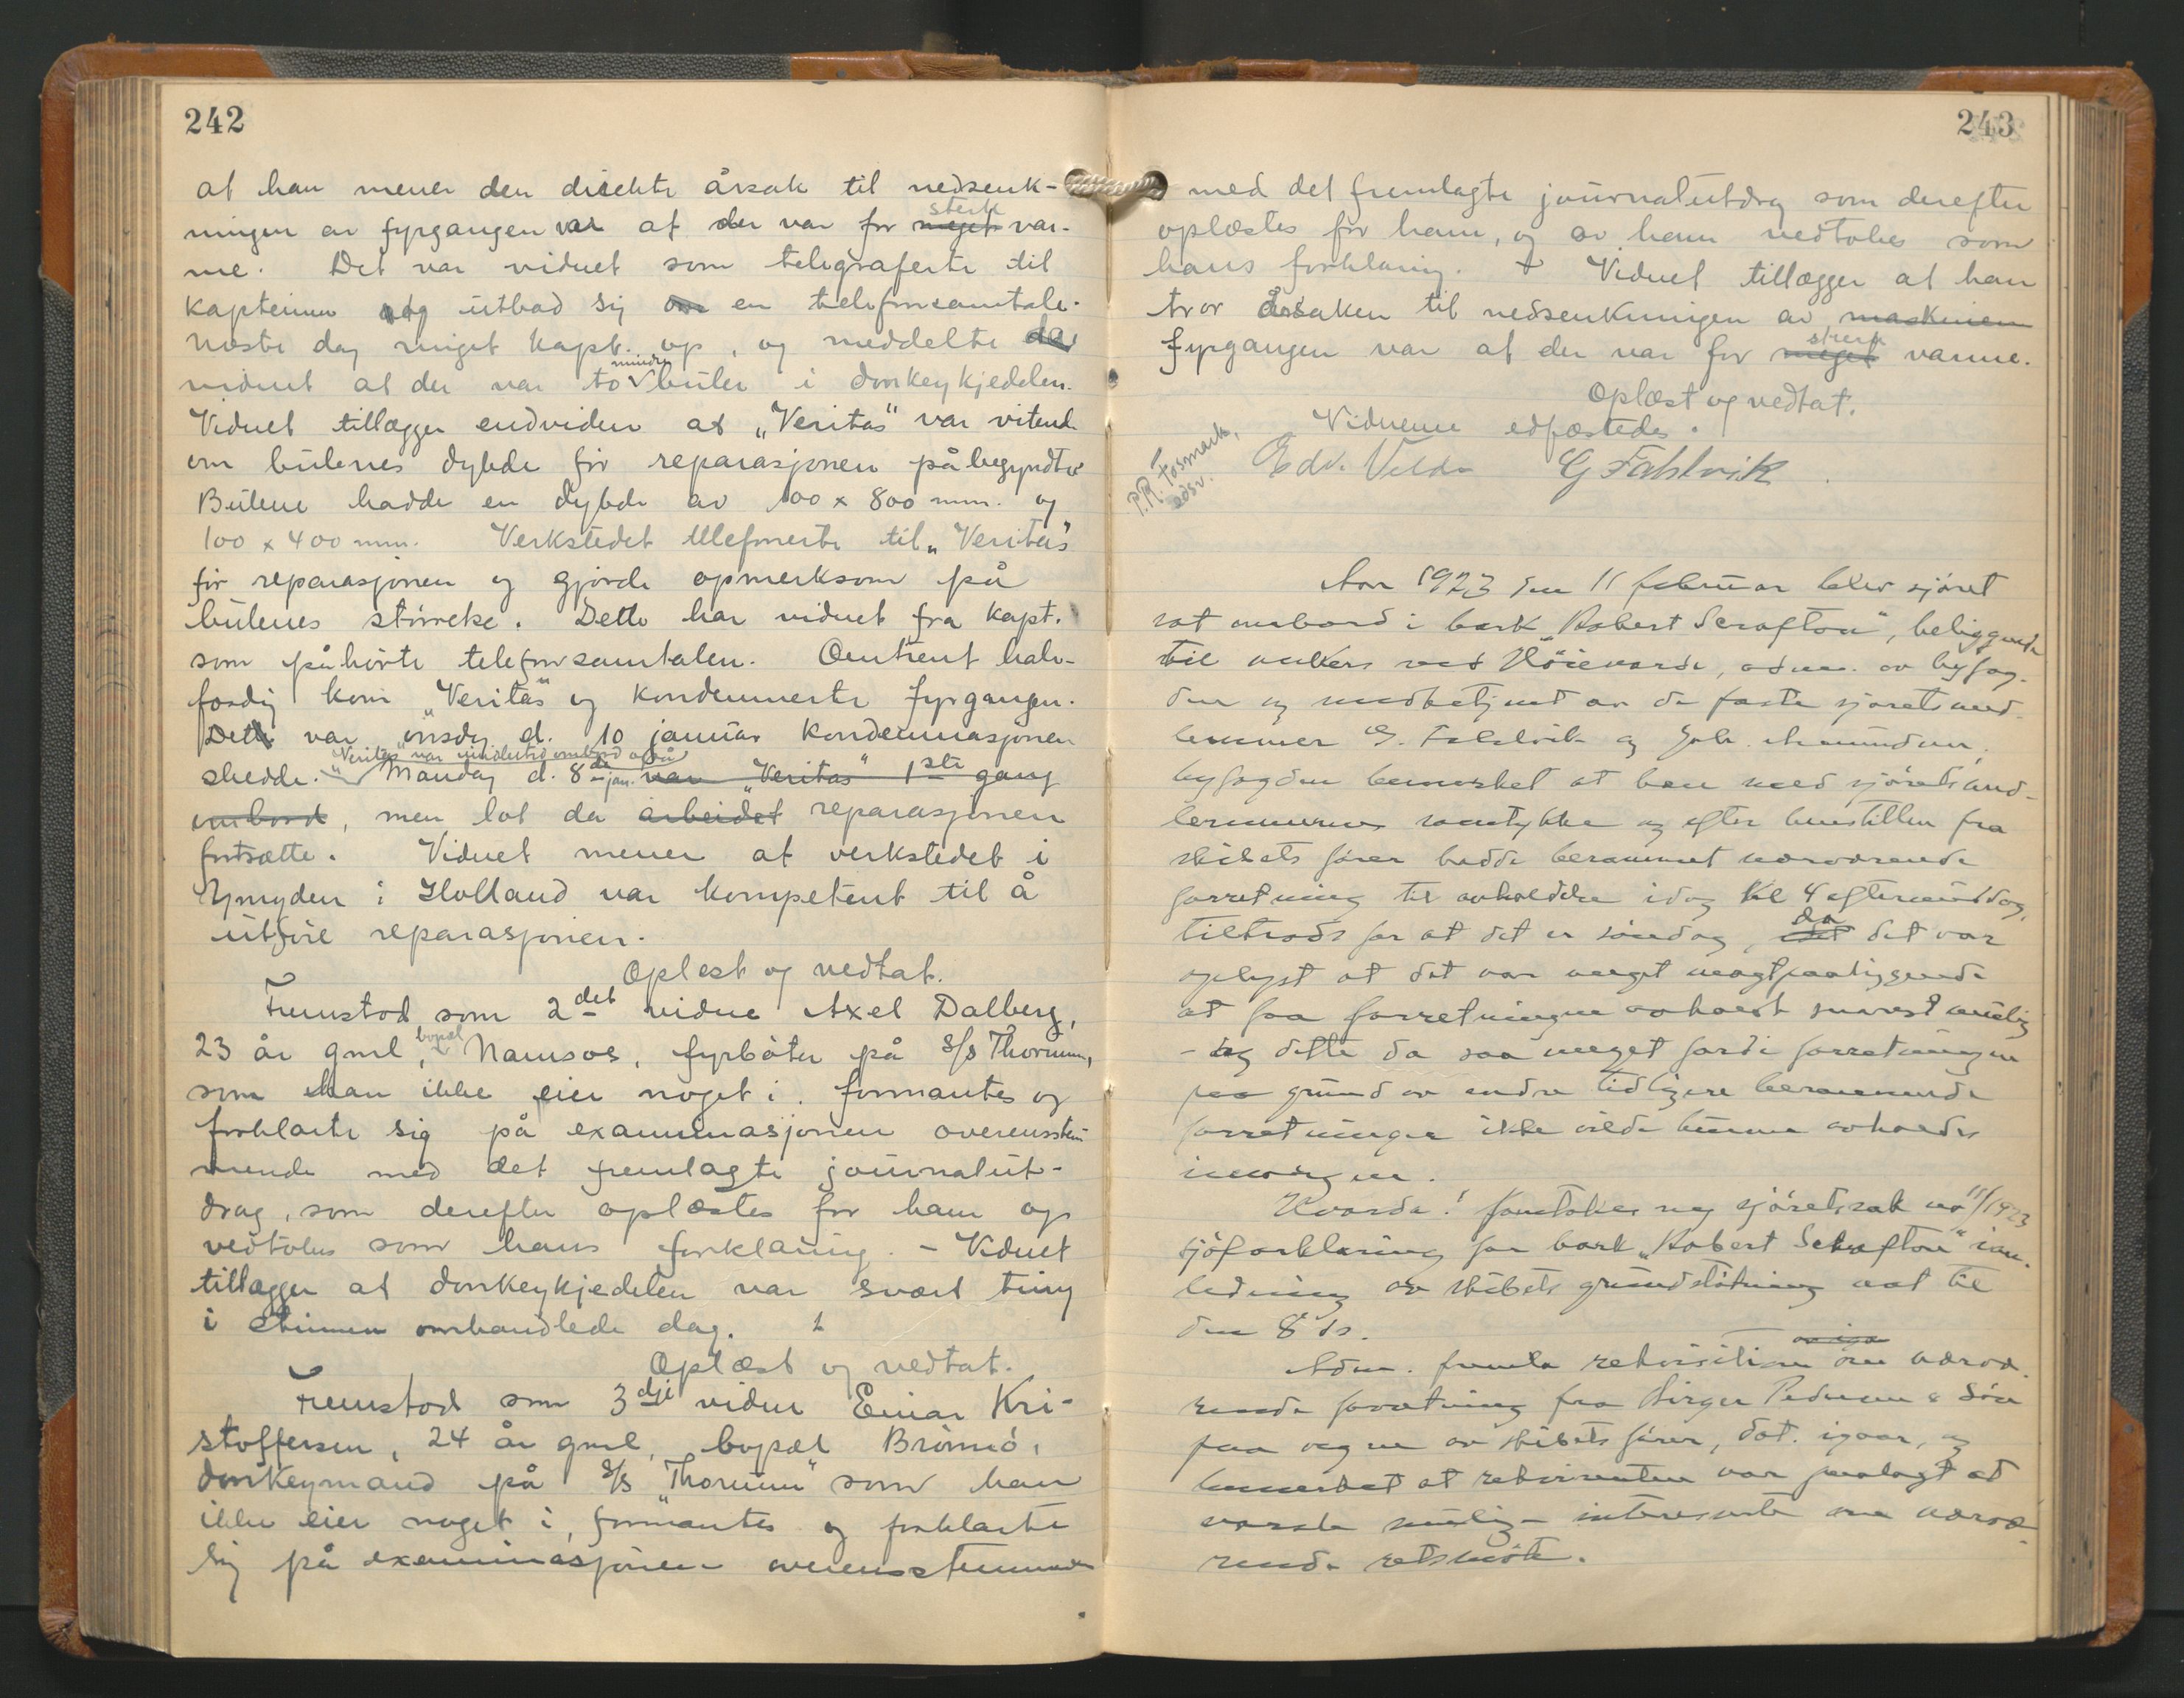 242
at han mener den direkte årsak til nedsenk-
ningen av fyrgangen var at der var for meget sterk var-
me. Det var vidnet som telegraferte til
kapteinen og utbad sig om en telefonsamtale.
Næste dag ringet kapt. op, og meddelte da
vidnet at der var to mindre buler i donkeykjedelen.
Vidnet tillægger endvidere at "Veritas" var vitende
om bulenes dybde før reparasjonen påbegyndte
Bulene hadde en dybde av 100 x 800 mm. og
100 x 400 mm. Verkstedet telefonerte til "Veritas"
før reparasjonen og gjorde opmerksom på
bulenes størrelse. Dette har vidnet fra kapt.
som påhørte telefonsamtalen. Omtrent halv-
færdig kom "Veritas" og kondemnerte fyrgangen.
Dette var onsdag d. 10 januar kondemnasjonen
"Veritas" var imidlertid ombord også
skedde. Mandag d. 8de jan. var "Veritas" 1ste gang
ombord, men lot da arbeidet reparasjonen
fortsætte. Vidnet mener at verkstedet i
Ymuyden i Holland var kompetent til å
utføre reparasjonen.
Oplest og vedtat.
Fremstod som 2det vidne Axel Dalberg,
23 år gml, bopæl Namsos, fyrbøter på s/s Thorunn,
som han ikke eier noget i. formantes og
forklarte sig på examinasjonen overensstem
mende med det fremlagte journalut-
drag, som derefter oplæstes for ham og
vedtokes som hans forklaring. - Vidnet
tillægger at donkeykjedelen var svært
i omhandlede dag.
Oplæst og vedtat.
Fremstod som 3dje vidne Einar Kri-
stoffersen, 24 år gml, bopæl Brønnø,
donkeymand på s/s "Thorunn" som han
ikke eier noget i, formantes og forklarte
sig på examinasjonen overensstemmende
243
med det fremlagte journalutdrag som derefter
oplæstes for ham, og av ham vedtokes som
hans forklaring. Vidnet tillægger at han
tror årsaken til nedsenkningen av maskinen
fyrgangen var at der var for meget sterk varme.
Oplæst og vedtat.
Vidnerne edfæstedes.
P.R. Fosmark,
edsv.
Edv. Velde G Fahlvik
Aar 1923 den 11 februar blev sjøret
sat ombord i bark "Robert Scrafton", beliggende
til ankers ved Høievarde, adm. av byfog-
den og medbetjent av de faste sjøretsmed-
lemmer G. Fahlvik og Joh. Amundsen.
byfogden bemerket at han med sjøretsmed-
lemmernes samtykke og efter henstillen fra
skibets fører hadde berammet nærværende
forretning til avholdelse idag kl 4 eftermiddag,
tiltrods for at det er søndag, idet da det var
oplyst at det var meget magtpaaliggende
at faa forretningen avholdt snarest mulig
- og dette da saa meget fordi forretningen
paa grund av andre tidligere berammede
forretninger ikke vilde kunne avholdes
imorgen.
Hvorda! foretokes ny sjøretssak no 11/1923
sjøforklaring for bark "Robert Scrafton" i an-
ledning av skibets grundstøtning nat til
den 8 ds.
Adm. fremla rekvisition om nærvæ-
rende forretning fra Birger Pedersen & Søn
paa vegne av skibets fører, dat. igaar, og
bemerket at rekvirenten var paalagt at
varsle mulig interesserte om nærvæ-
rende retsmøte.